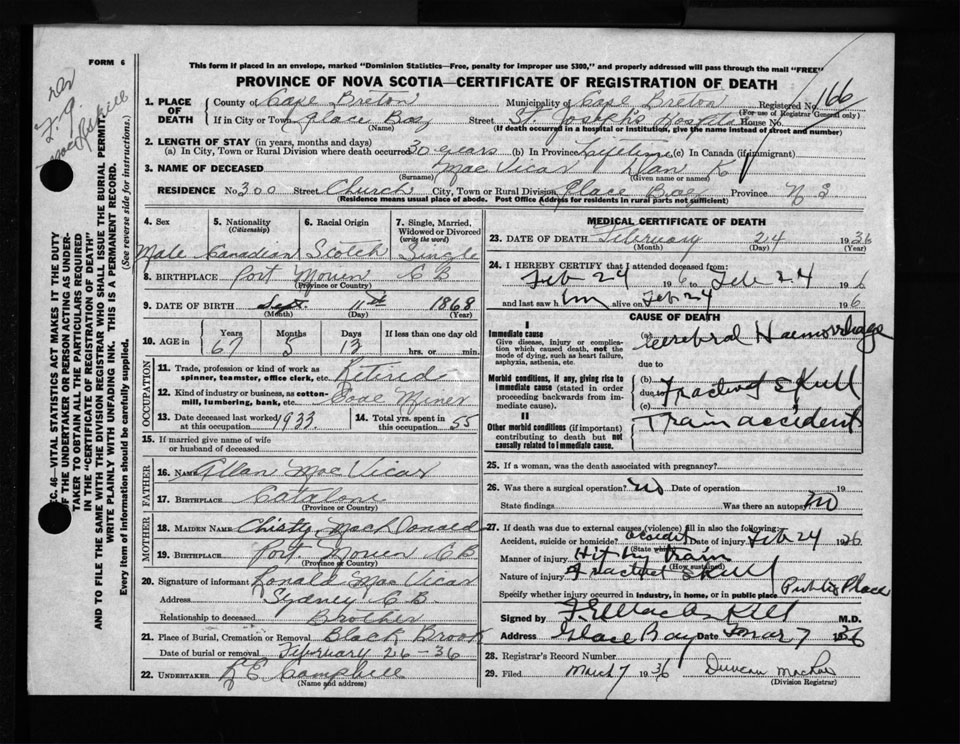 FORM 6
This form if placed in an envelope, marked "Dominion Statistics—Free, penalty for improper use $300," and properly addressed will pass through the mail "FREE"
PROVINCE OF NOVA SCOTIA—CERTIFICATE OF REGISTRATION OF DEATH
1. PLACE OF DEATH County of Cape Breton Municipality of Cape Breton Registered No. 166
(For use of Registrar General only)
If in City or Town Glace Bay Street St. Joseph's Hospital House No.
(Name) (If death occurred in a hospital or institution, give the name instead of street and number)
2. LENGTH OF STAY (in years, months and days)
(a) In City, Town or Rural Division where death occurred 30 years (b) In Province Lifetime (c) In Canada (if immigrant)
3. NAME OF DECEASED MacVicar Dan K
(Surname) (Given name or names)
RESIDENCE No. 300 Street Church City, Town or Rural Division Glace Bay Province N S
(Residence means usual place of abode. Post Office Address for residents in rural parts not sufficient)
4. Sex 5. Nationality (Citizenship) 6. Racial Origin 7. Single, Married, Widowed or Divorced (write the word)
Male Canadian Scotch Single
8. BIRTHPLACE Port Morien C B
(Province or Country)
9. DATE OF BIRTH Sept. 11th 1868
(Month) (Day) (Year)
10. AGE in Years Months Days If less than one day old
67 5 13 hrs. or min.
OCCUPATION
11. Trade, profession or kind of work as spinner, teamster, office clerk, etc. Retired
12. Kind of industry or business, as cotton-mill, lumbering, bank, etc. Coal Miner
13. Date deceased last worked at this occupation 1933 14. Total yrs. spent in this occupation 55
15. If married give name of wife or husband of deceased
FATHER
16. NAME Allan MacVicar
17. BIRTHPLACE Catalone
(Province or Country)
MOTHER
18. MAIDEN NAME Christy MacDonald
19. BIRTHPLACE Port Morien C B
(Province or Country)
20. Signature of informant Ronald MacVicar
Address Sydney C B
Relationship to deceased Brother
21. Place of Burial, Cremation or Removal Black Brook
Date of burial or removal February 26-36
22. UNDERTAKER Campbell
(Name and address)
MEDICAL CERTIFICATE OF DEATH
23. DATE OF DEATH February 24 1936
(Month) (Day) (Year)
24. I HEREBY CERTIFY that I attended deceased from:
Feb 24 1936 to Feb 24 1936
and last saw him alive on Feb 24 1936
CAUSE OF DEATH
I
Immediate cause
Give disease, injury or complication which caused death, not the mode of dying, such as heart failure, asphyxia, asthenia, etc
(a) Cerebral Haemorrhage
due to
Morbid conditions, if any, giving rise to immediate cause (stated in order proceeding backwards from immediate cause).
(b) Fractured Skull
due to
(c)
II
Other morbid conditions (if important) contributing to death but not causally related to immediate cause.
Train accident
25. If a woman, was the death associated with pregnancy?
26. Was there a surgical operation? No Date of operation 19
State findings Was there an autopsy? No
27. If death was due to external causes (violence) fill in also the following:
Accident, suicide or homicide? accident Date of injury Feb 24 1936
(State which)
Manner of injury Hit by train
(How sustained)
Nature of injury Fractured Skull
Specify whether injury occurred in industry, in home, or in public place Public Place
Signed by M.D.
Address Glace Bay Date Mar 7 1936
28. Registrar's Record Number
29. Filed March 7 1936 Duncan
(Division Registrar)
C.C. 46—VITAL STATISTICS ACT MAKES IT THE DUTY
OF THE UNDERTAKER OR PERSON ACTING AS UNDER-
TAKER TO OBTAIN ALL THE PARTICULARS REQUIRED
IN THE "CERTIFICATE OF REGISTRATION OF DEATH"
AND TO FILE THE SAME WITH THE DIVISION REGISTRAR WHO SHALL ISSUE THE BURIAL PERMIT.
WRITE PLAINLY WITH UNFADING INK. THIS IS A PERMANENT RECORD.
Every item of information should be carefully supplied. (See reverse side for instructions.)